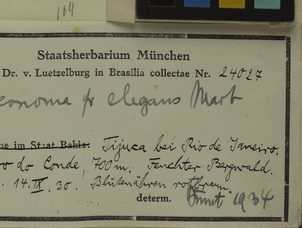 164
Staatsherbarium München
Dr. v. Luetzelburg in Brasilia collectae Nr. 24027
conoma fr elegans Mart
ne im Staat Bahia: Tijuca bei Rio de Janeiro.
o do Conde, 700 m. Feuchter Bergwald.
14. IX. 30. Blütenähren rotbraun.
determ. 1934